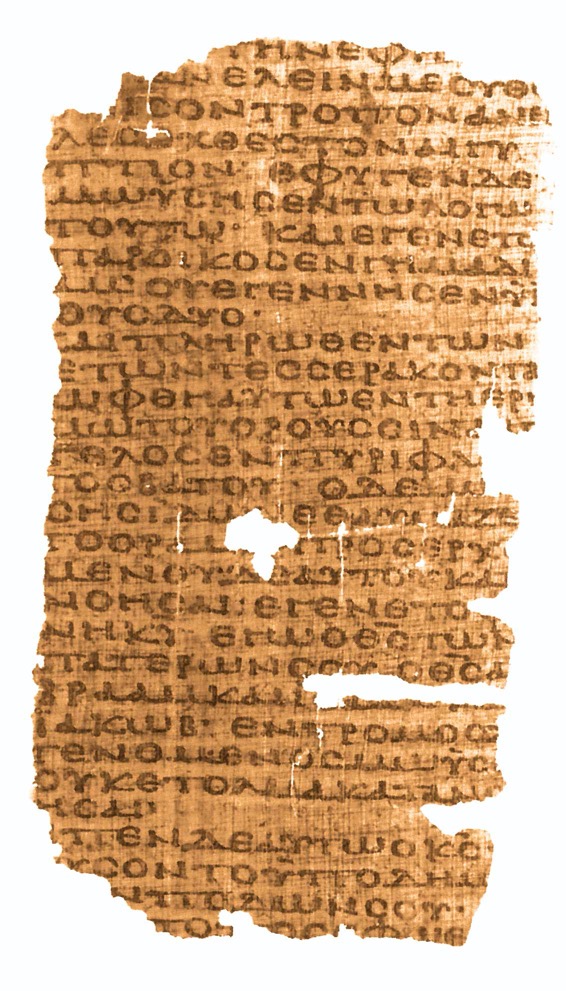 ΤΗΝΕΦ
ΑΝΕΛΕΙΝΜΕϹΥΘΕ
ΙϹΟΝΤΡΟΠΟΝΑΝΕΙ
ΛΕϹΕΧΘΕϹΤΟΝΑΙΓΥ
ΠΤΙΟΝ· ΕΦΥΓΕΝΔΕ
ΜΩΥϹΗϹΕΝΤΩΛΟΓΩ
ΤΟΥΤΩ· ΚΑΙΕΓΕΝΕΤΟ
ΠΑΡΟΙΚΟϹΕΝΓΗΜΑΔΙ
ΑΜ ΟΥΕΓΕΝΝΗϹΕΝΥΙ
ΟΥϹΔΥΟ·
ΚΑΙΠΛΗΡΩΘΕΝΤΩΝ
ΕΤΩΝΤΕϹϹΕΡΑΚΟΝΤΑ
ΩΦΘΗΑΥΤΩΕΝΤΗΕΡΗ
ΜΩΤΟΥΟΡΟΥϹϹΙΝ
ΓΕΛΟϹΕΝΠΥΡΙΦΛ
ΓΟϹΒΑΤΟΥ· ΟΔΕΜ
ϹΗϹΙΔΩ ΕΘΑΥΜΑΖΕ
ΤΟΟΡΑ ΠΡΟϹΕΡΧ
ΜΕΝΟΥΔΕΑΥΤΟΥΚΑ
ΝΟΗϹΑΙ· ΕΓΕΝΕΤΟ
ΝΗΚΥ ΕΓΩΟΘϹΤΩΝ
ΠΑΤΕΡΩΝϹΟΥ ΟΘϹΑ
ΒΡΑΑΜΚΑΙ
ΙΑΚΩΒ· ΕΝΤΡΟΜΟϹ
ΓΕΝΟΜΕΝΟϹΜΩΥϹ
ΟΥΚΕΤΟΛΜΑΚΑΤΑΝ
ϹΑΙ·
ΠΕΝΔΕΑΥΤΩΟΚϹ
ΥϹΟΝΤΟΥΠΟΔΗΜ
ΝΠΟΔΩΝϹΟΥ·
ΤΟ